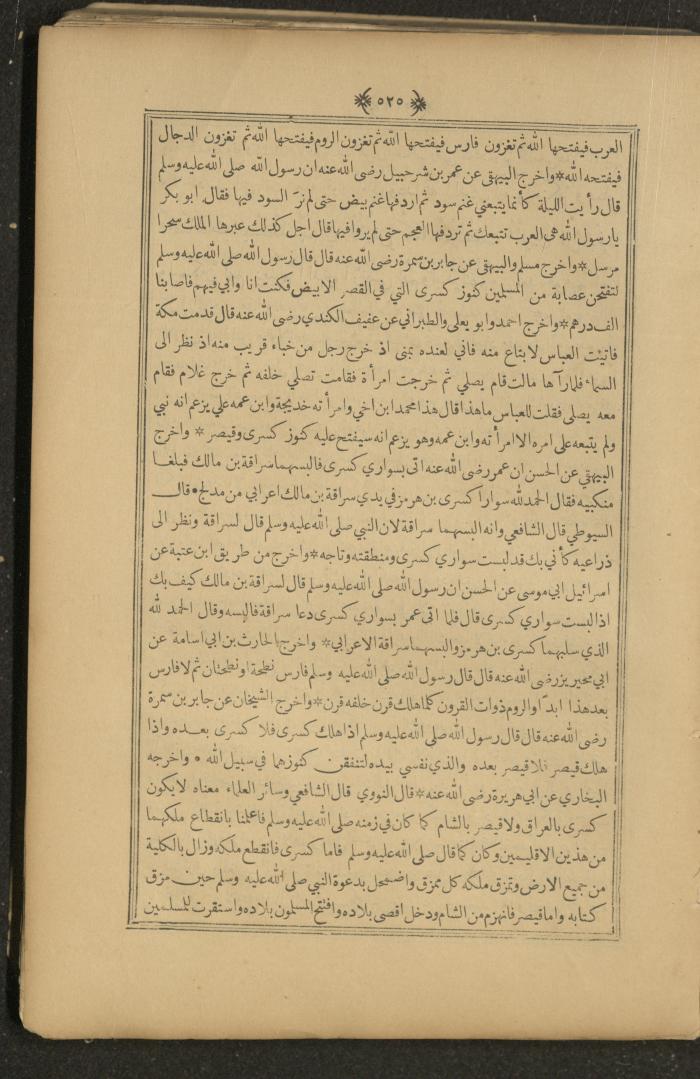 ٥٢٥
العرب فيفتحها الله ثم تغزون فارس فيفتحها الله ثم تغزون الروم فيفتحها الله ثم تغزون الدجال
فيفتحه الله * واخرج البيهقي عن عمر بن شرحبيل رضى الله عنه ان رسول الله صلى الله عليه وسلم
قال رأيت الليلة كأنما يتبعني غنم سود ثم اردفها غنم بيض حتى لم نرَ السود فيها فقال ابو بكر
يا رسول الله هى العرب تتبعك ثم تردفها العجم حتى لم يروا فيها قال اجل كذلك عبرها الملك سحرا
مرسل * واخرج مسلم والبيهقي عن جابر بن سمرة رضى الله عنه قال قال رسول الله صلى الله عليه وسلم
لتفتحن عصابة من المسلمين كنوز كسرى التي في القصر الابيض فكنت انا وابي فيهم فاصابنا
الف درهم * واخرج احمد وابو يعلى والطبراني عن عفيف الكندي رضى الله عنه قال قدمت مكة
فاتيت العباس لابتاع منه فاني لعنده بمنى اذ خرج رجل من خباء قريب منه اذ نظر الى
السماء فلما رآها مالت قام يصلي ثم خرجت امرأة فقامت تصلي خلفه ثم خرج غلام فقام
معه يصلى فقلت للعباس ما هذا قال هذا محمد ابن اخي وامرأته خديجة وابن عمه علي يزعم انه نبي
ولم يتبعه على امره الا امرأته وابن عمه وهو يزعم انه سيفتح عليه كنوز كسرى وقيصر * واخرج
البيهقي عن الحسن ان عمر رضى الله عنه اتى بسواري كسرى فالبسهما سراقة بن مالك فبلغا
منكبيه فقال الحمد لله سوارا كسرى بن هرمز في يدي سراقة بن مالك اعرابي من مدلج * قال
السيوطي قال الشافعي وانه البسهما سراقة لان النبي صلى الله عليه وسلم قال لسراقة ونظر الى
ذراعيه كأني بك قد لبست سواري كسرى ومنطقته وتاجه * واخرج من طريق ابن عتبة عن
اسرائيل ابي موسى عن الحسن ان رسول الله صلى الله عليه وسلم قال لسراقة بن مالك كيف بك
اذا لبست سواري كسرى قال فلما اتى عمر بسواري كسرى دعا سراقة فالبسه وقال الحمد لله
الذي سلبهما كسرى بن هرمز والبسهما سراقة الاعرابي * واخرج الحارث بن ابي اسامة عن
ابي محيريز رضى الله عنه قال قال رسول الله صلى الله عليه وسلم فارس نطحة او نطحتان ثم لا فارس
بعد هذا ابداً والروم ذوات القرون كلما هلك قرن خلفه قرن * واخرج الشيخان عن جابر بن سمرة
رضى الله عنه قال قال رسول الله صلى الله عليه وسلم اذا هلك كسرى فلا كسرى بعده واذا
هلك قيصر فلا قيصر بعده والذي نفسي بيده لتنفقن كنوزهما في سبيل الله * واخرجه
البخاري عن ابي هريرة رضى الله عنه * قال النووي قال الشافعي وسائر العلماء معناه لا يكون
كسرى بالعراق ولا قيصر بالشام كما كان في زمنه صلى الله عليه وسلم فاعلمنا بانقطاع ملكهما
من هذين الاقليمين وكان كما قال صلى الله عليه وسلم فاما كسرى فانقطع ملكه وزال بالكلية
من جميع الارض وتمزق ملكه كل ممزق واضمحل بدعوة النبي صلى الله عليه وسلم حين مزق
كتابه واما قيصر فانهزم من الشام ودخل اقصى بلاده وافتتح المسلمون بلاده واستقرت للمسلمين